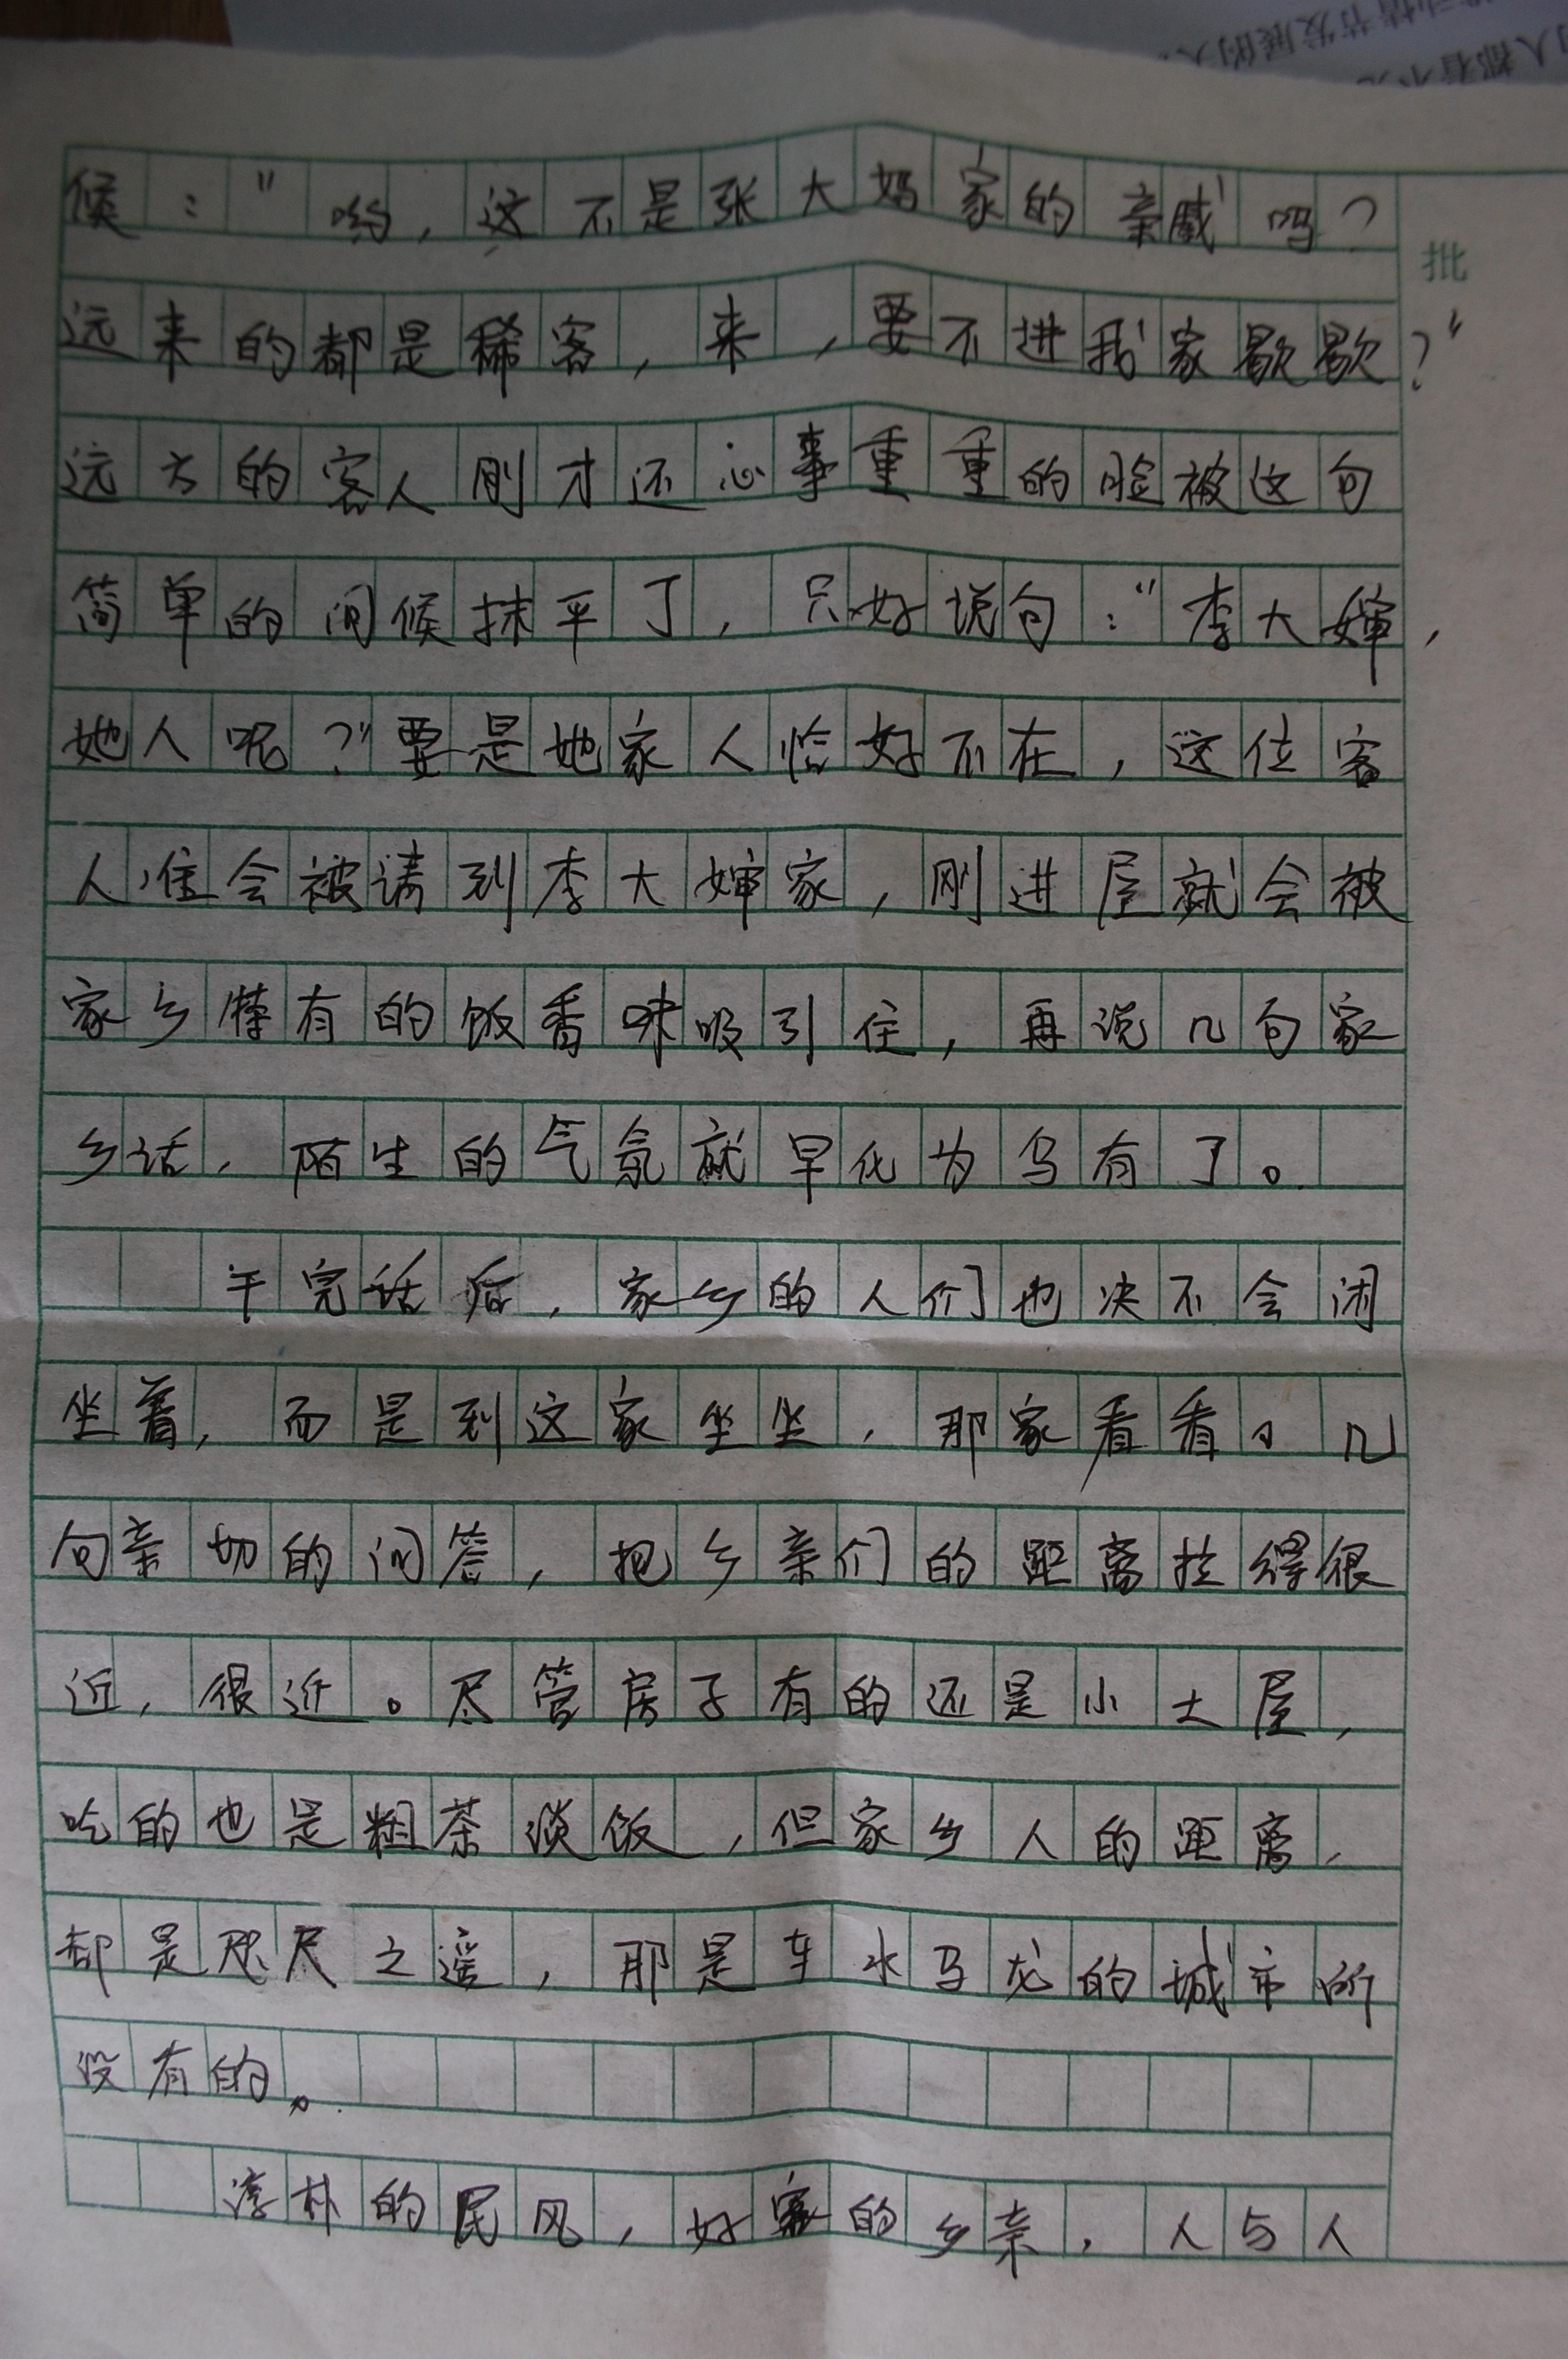 情节发展的人
人都看不见
候：“哟，这不是张大妈家的亲戚吗？
批
远来的都是稀客，来，要不进我家歇歇？”
远方的客人刚才还心事重重的脸被这句
简单的问候抹平了，只好说句：“李大婶，
她人呢？”要是她家人恰好不在，这位客
人准会被请到李大婶家，刚进屋就会被
家乡特有的饭香味吸引住，再说几句家
乡话，陌生的气氛就早化为乌有了。
干完话后，家乡的人们也决不会闲
坐着，而是到这家坐坐，那家看看。几
句亲切的问答，把乡亲们的距离拉得很
近，很近。尽管房子有的还是小土屋，
吃的也是粗茶淡饭，但家乡人的距离，
却是咫尺之遥，那是车水马龙的城市所
没有的。
淳朴的民风，好客的乡亲，人与人